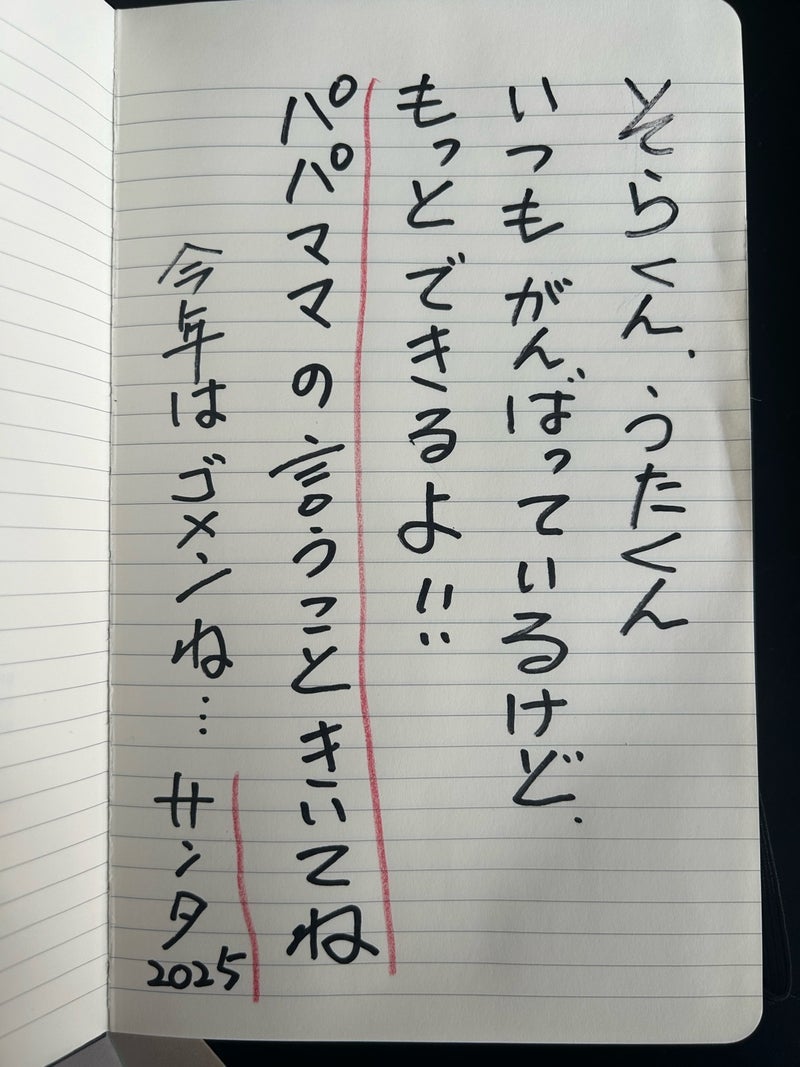 そらくん.うたくん
いつもがんばっているけど.
もっとできるよ!!
パパママの言うこときいてね
今年はゴメンね… サンタ
2025